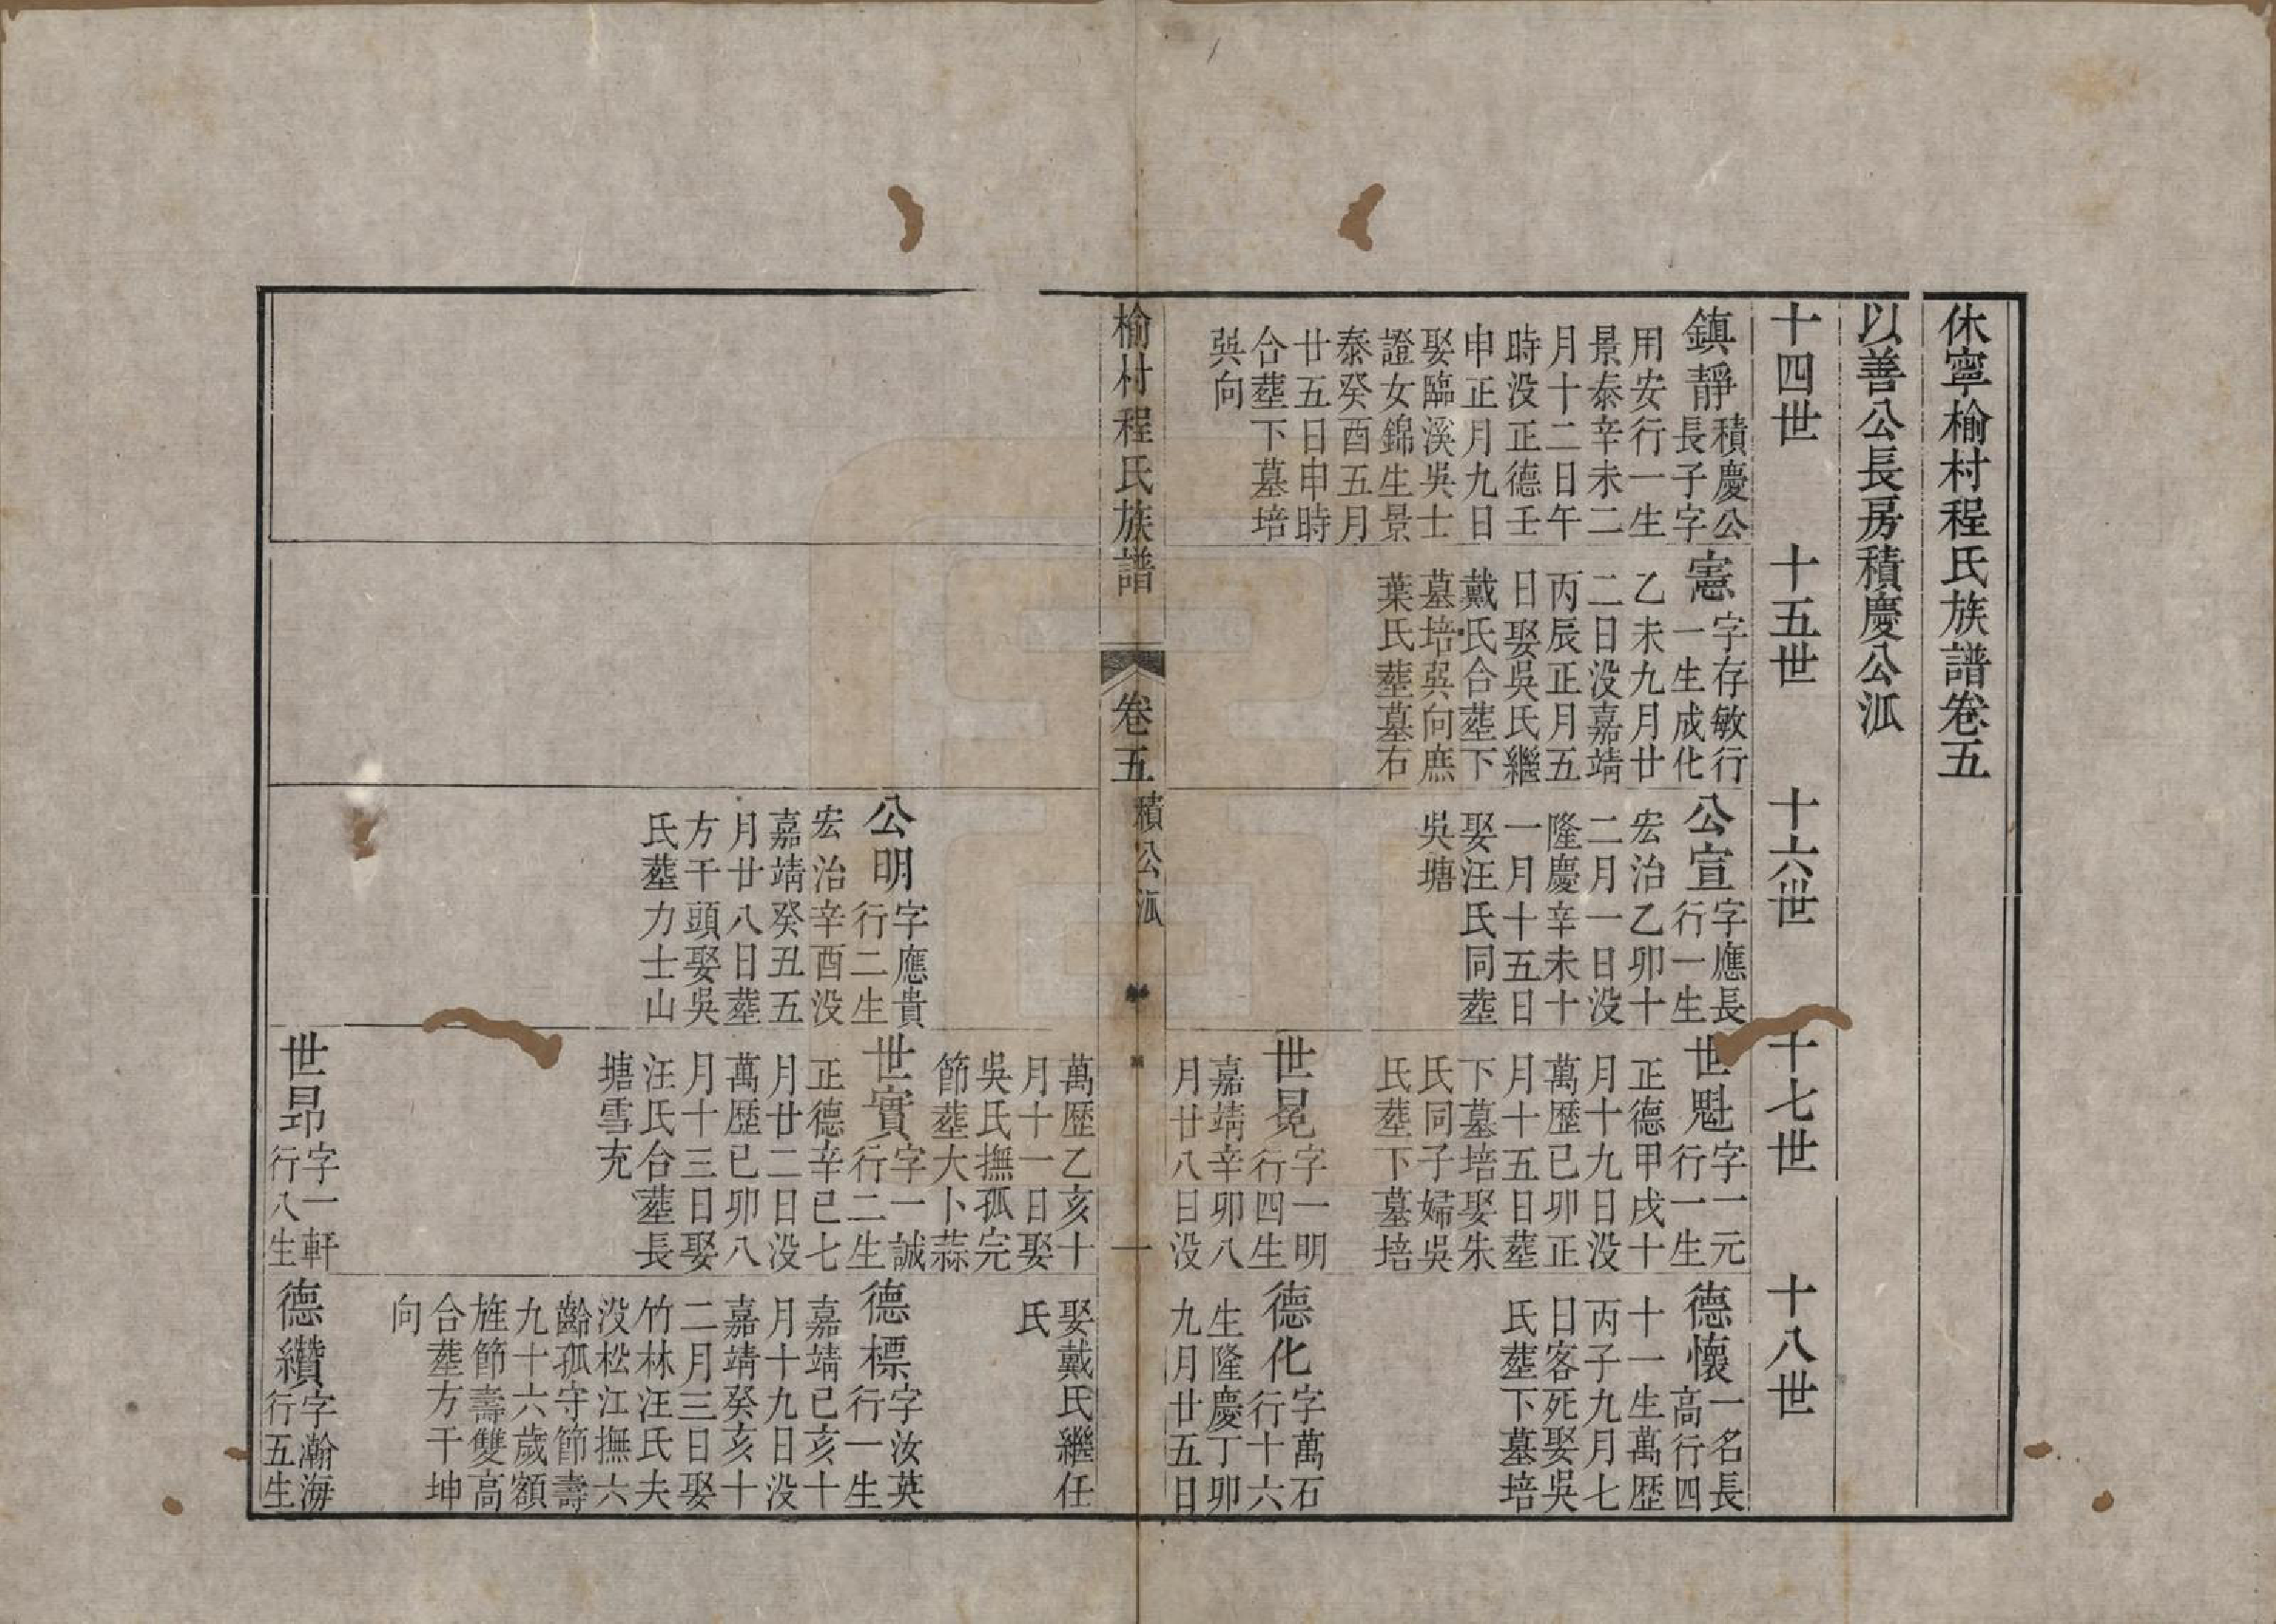 休寧榆村程氏族譜卷五
以善公長房積慶公派
十四世
十五世
十六世
十七世
十八世
鎮靜
積慶公
長子字
用安行一生
景泰辛未二
月十二日午
時没正德壬
申正月九日
娶臨溪吳士
證女錦生景
泰癸酉五月
廿五日申時
合塟下墓培
巽向
憲
字存敏行
一生成化
乙未九月廿
二日没嘉靖
丙辰正月五
日娶吳氏繼
戴氏合塟下
墓培巽向庶
葉氏塟墓右
公宣
字應長
行一生
宏治乙卯十
二月一日没
隆慶辛未十
一月十五日
娶汪氏同塟
吳塘
世魁
字一元
行一生
正德甲戌十
月十九日没
萬歴已卯正
月十五日塟
下墓培娶朱
氏同子婦吳
氏塟下墓培
德懷
一名長
高行四
十一生萬歴
丙子九月七
日客死娶吳
氏塟下墓培
世晃
字一明
行四生
嘉靖辛卯八
月廿八日没
德化
字萬石
行十六
生隆慶丁卯
九月廿五日
榆村程氏族譜
卷五
積公派
一
萬歴乙亥十
月十一日娶
吳氏撫孤完
節塟大卜蒜
娶戴氏繼任
氏
公明
字應貴
行二生
宏治辛酉没
嘉靖癸丑五
月廿八日塟
方干頭娶吳
氏塟力士山
世實
字一誠
行二生
正德辛已七
月廿二日没
萬歴已卯八
月十三日娶
汪氏合塟長
塘雪充
德標
字汝英
行一生
嘉靖已亥十
月十九日没
嘉靖癸亥十
二月三日娶
竹林汪氏夫
没松江撫六
齡孤守節壽
九十六歲額
旌節壽雙高
合塟方干坤
向
世昂
字一軒
行八生
德纘
字瀚海
行五生